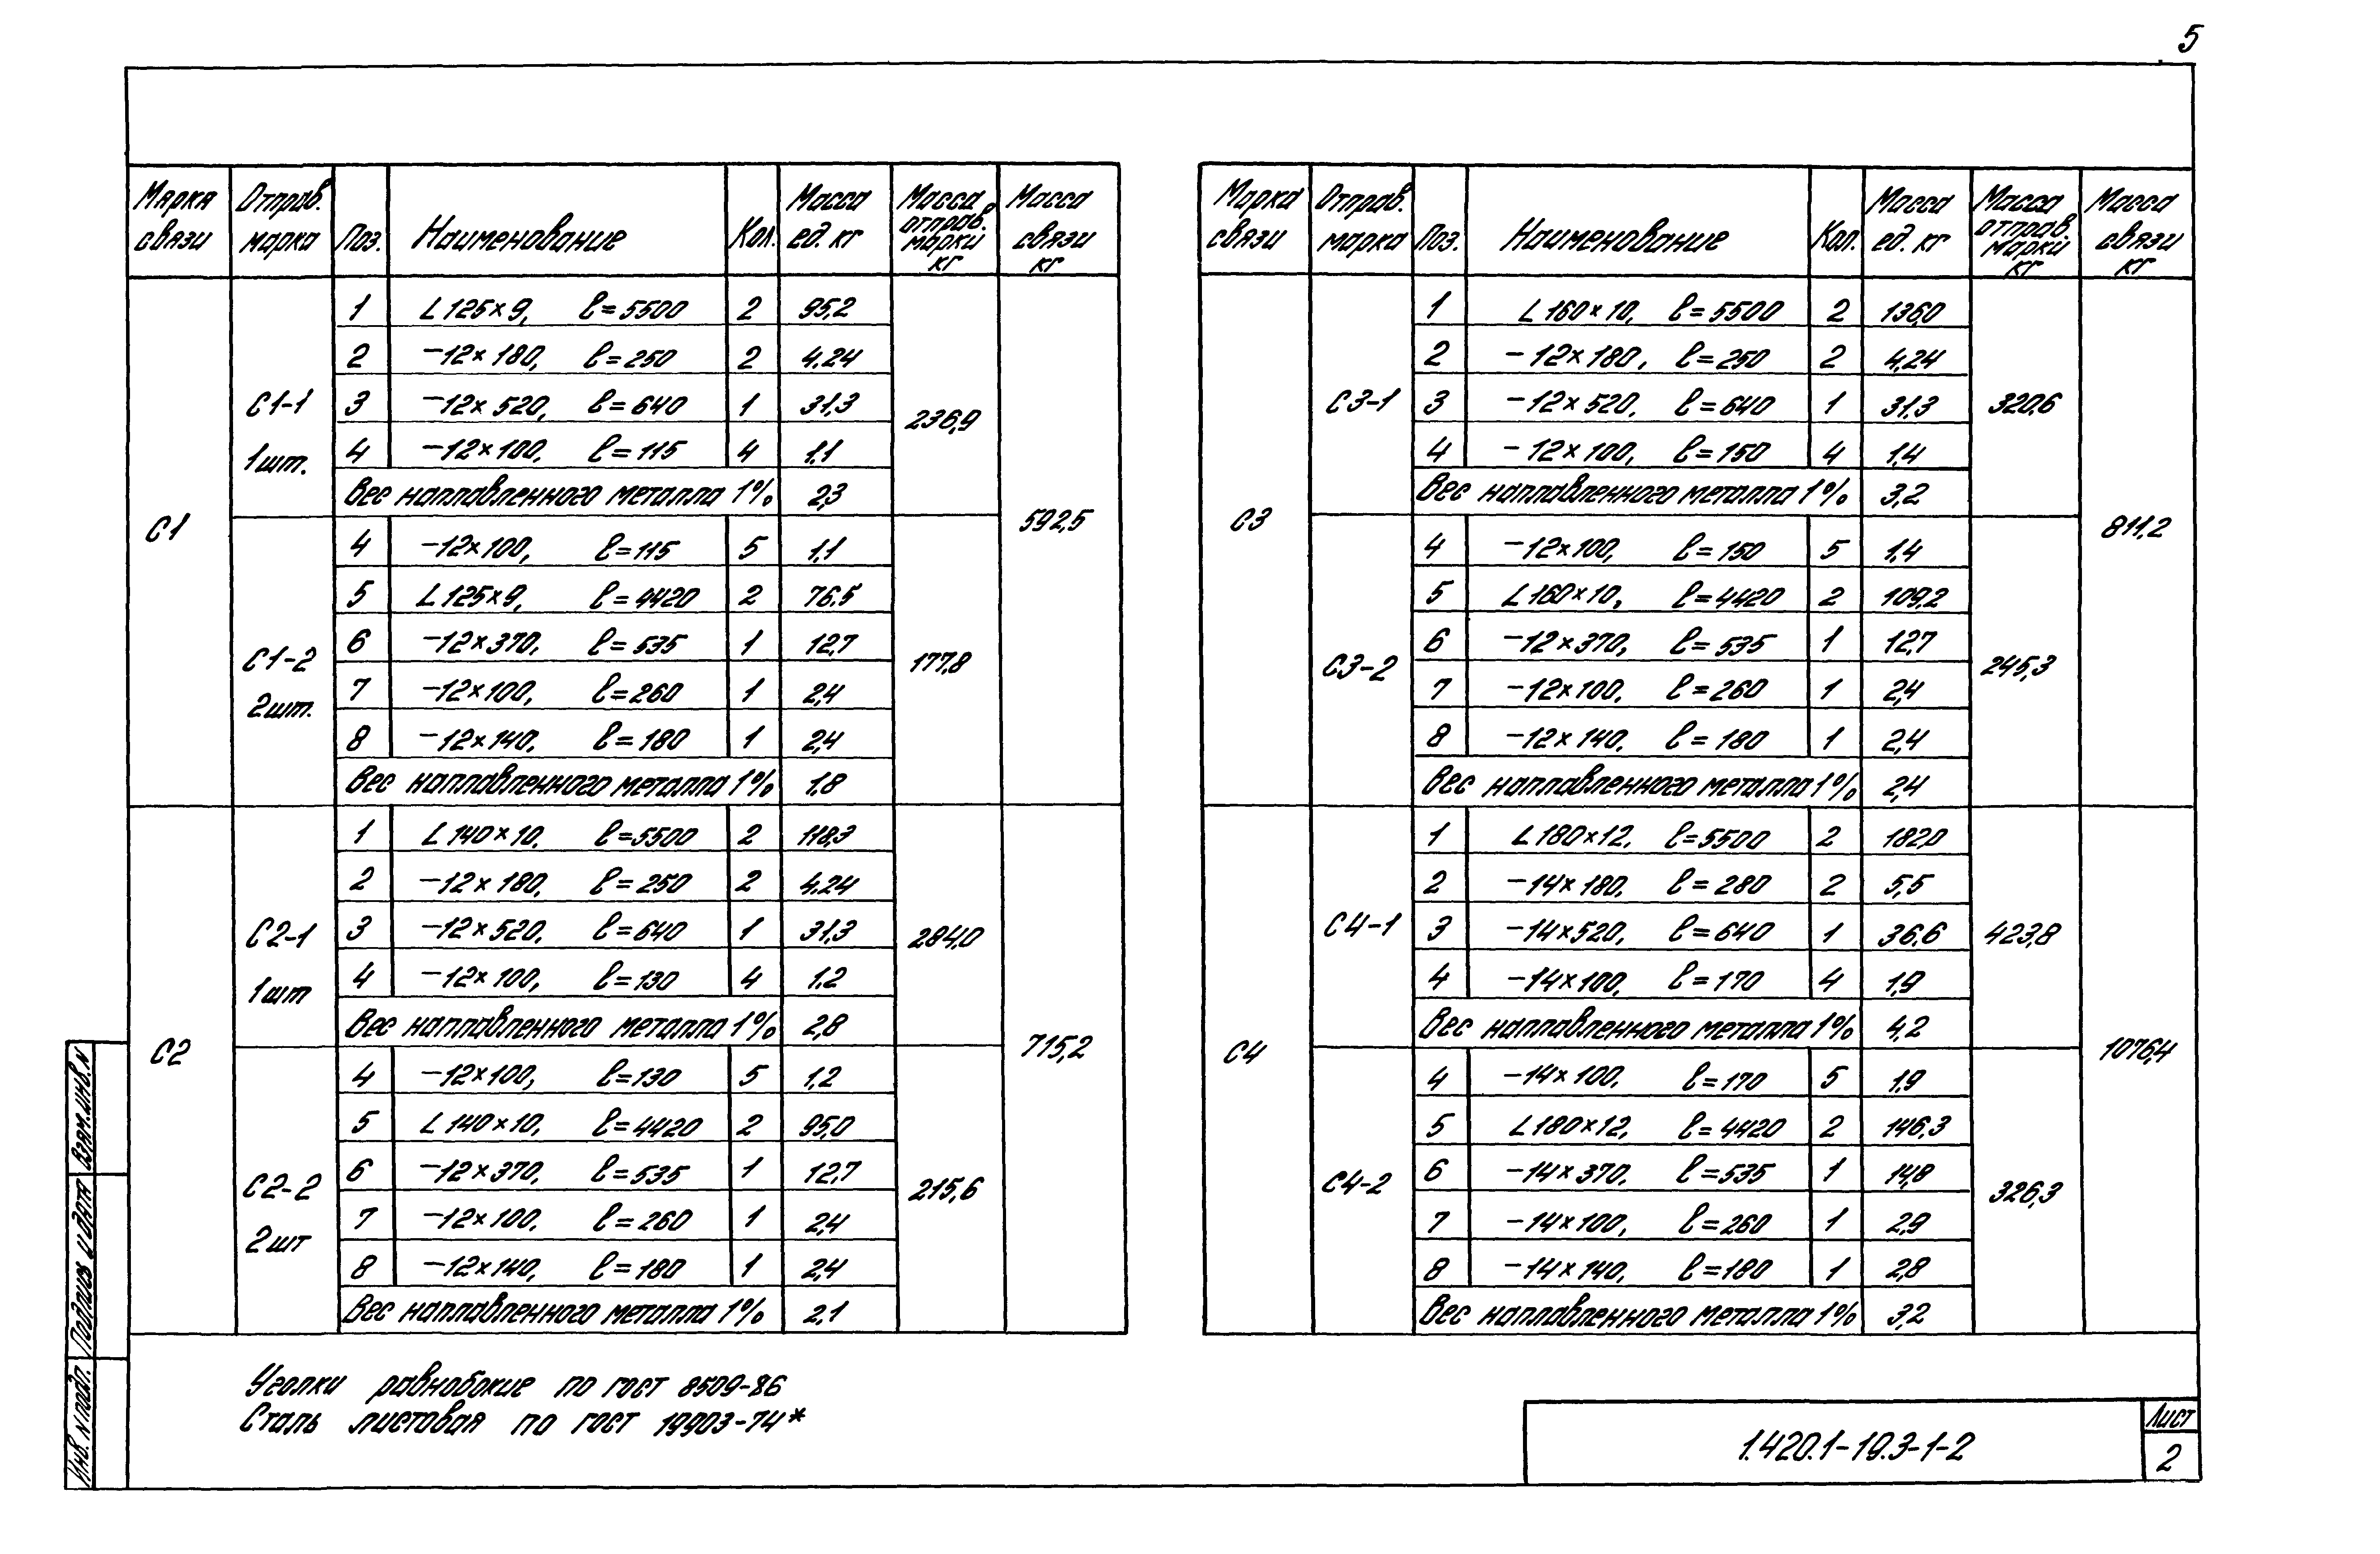 5
Марка связи Отправ. марка Поз. Наименование Кол. Масса ед. кг Масса отправ. марки кг Масса связи кг
С1 592,5
С1-1 1шт. 236,9
1 L 125×9, ℓ=5500 2 95,2
2 -12×180, ℓ=250 2 4,24
3 -12×520, ℓ=640 1 31,3
4 -12×100, ℓ=115 4 1,1
Вес наплавленного металла 1% 2,3
С1-2 2шт. 177,8
4 -12×100, ℓ=115 5 1,1
5 L 125×9, ℓ=4420 2 76,5
6 -12×370, ℓ=535 1 12,7
7 -12×100, ℓ=260 1 2,4
8 -12×140, ℓ=180 1 2,4
Вес наплавленного металла 1% 1,8
С2 715,2
С2-1 1шт 284,0
1 L 140×10, ℓ=5500 2 118,3
2 -12×180, ℓ=250 2 4,24
3 -12×520, ℓ=640 1 31,3
4 -12×100, ℓ=130 4 1,2
Вес наплавленного металла 1% 2,8
С2-2 2шт 215,6
4 -12×100, ℓ=130 5 1,2
5 L 140×10, ℓ=4420 2 95,0
6 -12×370, ℓ=535 1 12,7
7 -12×100, ℓ=260 1 2,4
8 -12×140, ℓ=180 1 2,4
Вес наплавленного металла 1% 2,1
Марка связи Отправ. марка Поз. Наименование Кол. Масса ед. кг Масса отправ. марки кг Масса связи кг
С3 811,2
С3-1 320,6
1 L 160×10, ℓ=5500 2 136,0
2 -12×180, ℓ=250 2 4,24
3 -12×520, ℓ=640 1 31,3
4 -12×100, ℓ=150 4 1,4
Вес наплавленного металла 1% 3,2
С3-2 245,3
4 -12×100, ℓ=150 5 1,4
5 L 160×10, ℓ=4420 2 109,2
6 -12×370, ℓ=535 1 12,7
7 -12×100, ℓ=260 1 2,4
8 -12×140, ℓ=180 1 2,4
Вес наплавленного металла 1% 2,4
С4 1076,4
С4-1 423,8
1 L 180×12, ℓ=5500 2 182,0
2 -14×180, ℓ=280 2 5,5
3 -14×520, ℓ=640 1 36,6
4 -14×100, ℓ=170 4 1,9
Вес наплавленного металла 1% 4,2
С4-2 326,3
4 -14×100, ℓ=170 5 1,9
5 L 180×12, ℓ=4420 2 146,3
6 -14×370, ℓ=535 1 14,8
7 -14×100, ℓ=260 1 2,9
8 -14×140, ℓ=180 1 2,8
Вес наплавленного металла 1% 3,2
Уголки равнобокие по ГОСТ 8509-86
Сталь листовая по ГОСТ 19903-74*
1.420.1-19.3-1-2
Лист
2
Взам. инв. N
Подпись и дата
Инв. N подл.